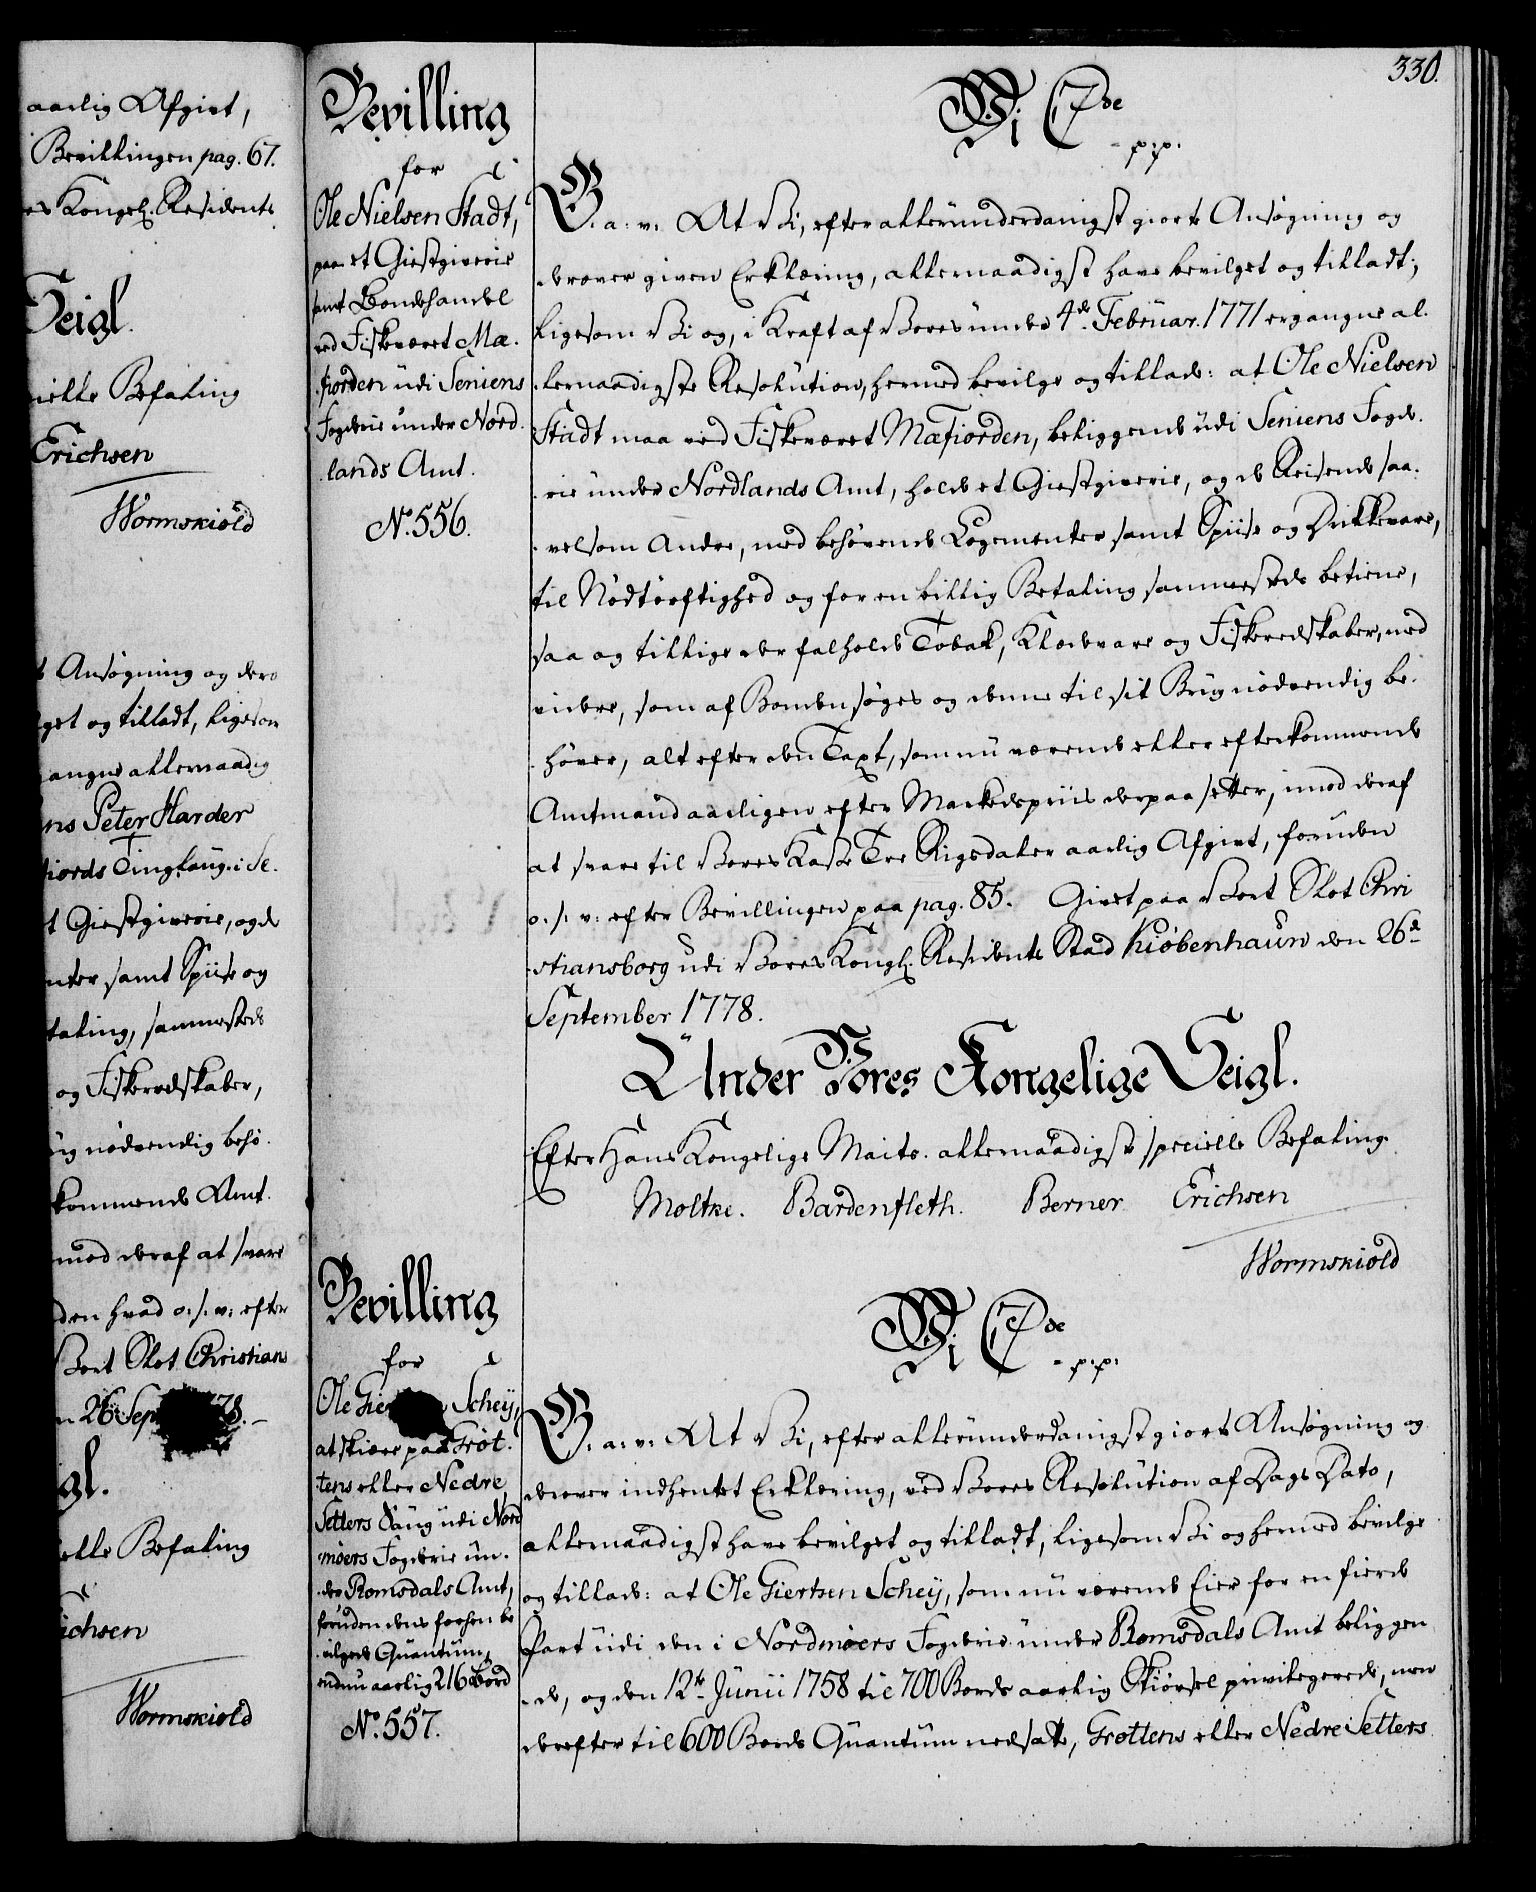 aarlig Afgivt,
Bevillingen pag. 67.
es Kongel. Residents
Seigl.
cielle Befaling
Erichsen
Wormskiold
t Ansøgning og dero
get og tilladt, ligesom
angne allernaadig
ns Peter Harder
fiords Tinglaug i Se.
t Giestgiverie, og de
nter samt Spiise og
taling, sammesteds
og Fiskeredskaber,
ug nødvendig behø.
kommende Amt.
mod deraf at svare
den hvad o. s. v. efter
Vort Slot Christians
n 26 Sep 78.
gl.
elle Befaling
ichsen
Wormskiold
330.
Bevilling
for
Ole Nielsen Stadt,
paa et Giestgiverie
samt Bondehandel
ved Fiskeværet Mæ.
fiorden udi Seniens
Fogderie under Nord.
lands Amt.
No. 556.
Vi C 7de
p.p.
G. a. v. At Vi, efter allerunderdanigst giorte Ansøgning og
derover given Erklæring, allernaadigst have bevilget og tilladt,
ligesom Vi og, i Kraft af Vores under 4de Februar. 1771 ergangne al.
lernaadigste Resolution, hermed bevilge og tillade: at Ole Nielsen
Stadt maa ved Fiskeværet Mæfiorden, beliggende udi Seniens Fogde.
rie under Nordlands Amt, holde et Giestgiverie, og de Reisende saa.
velsom Andre, med behøvende Logementer samt Spiise og Drikkevare,
til Nødtørftighed og for en billig Betaling sammesteds betiene,
saa og tillige der falholde Tobak, Kledevare og Fiskeredskaber, med
videre, som af Bonden søges og denne til sit Brug nødvendig be.
høver, alt efter den Taxt, som nu værende eller efterkommende
Amtmand aarligen efter Markedspriis derpaa setter, imod deraf
at svare til Vores Kasse Tre Rigsdaler aarlig Afgivt, foruden
o. s. v. efter Bevillingen paa pag. 85. Givet paa Vort Slot Chri
stiansborg udi Vores Kongl. Residents Stad Kiøbenhaun den 26de
September 1778.
Under Vores Kongelige Seigl.
Efter Hans Kongelige Maits. allernaadigste specielle Befaling
Moltke. Bardenfleth. Berner Erichsen
Wormskiold
Bevilling
for
Ole Gie Scheij,
at skiære paa Grøt.
tens eller Nedre
Setters Saug udi Nord
møers Fogderie un.
der Romsdals Amt,
foruden dens forhen be
vilgede Quantum,
endnu aarlig 216 Bord
No. 557.
Vi C 7de
p.p.
G. a. v. At Vi, efter allerunderdanigst giorte Ansøgning og
derover indhentet Erklæring, ved Vores Resolution af Dags Dato,
allernaadigst have bevilget og tilladt, ligesom Vi og hermed bevilge
og tillade: at Ole Giertsen Scheij, som nu værende Eier for en fierde
Part udi den i Nordmøers Fogderie under Romsdals Amt beliggen
de, og den 12te Junii 1758 til 700 Bords aarlig Skiørsel privilegerede, men
derefter til 600 Bords Quantum nedsatte, Grøttens eller Nedre Setters